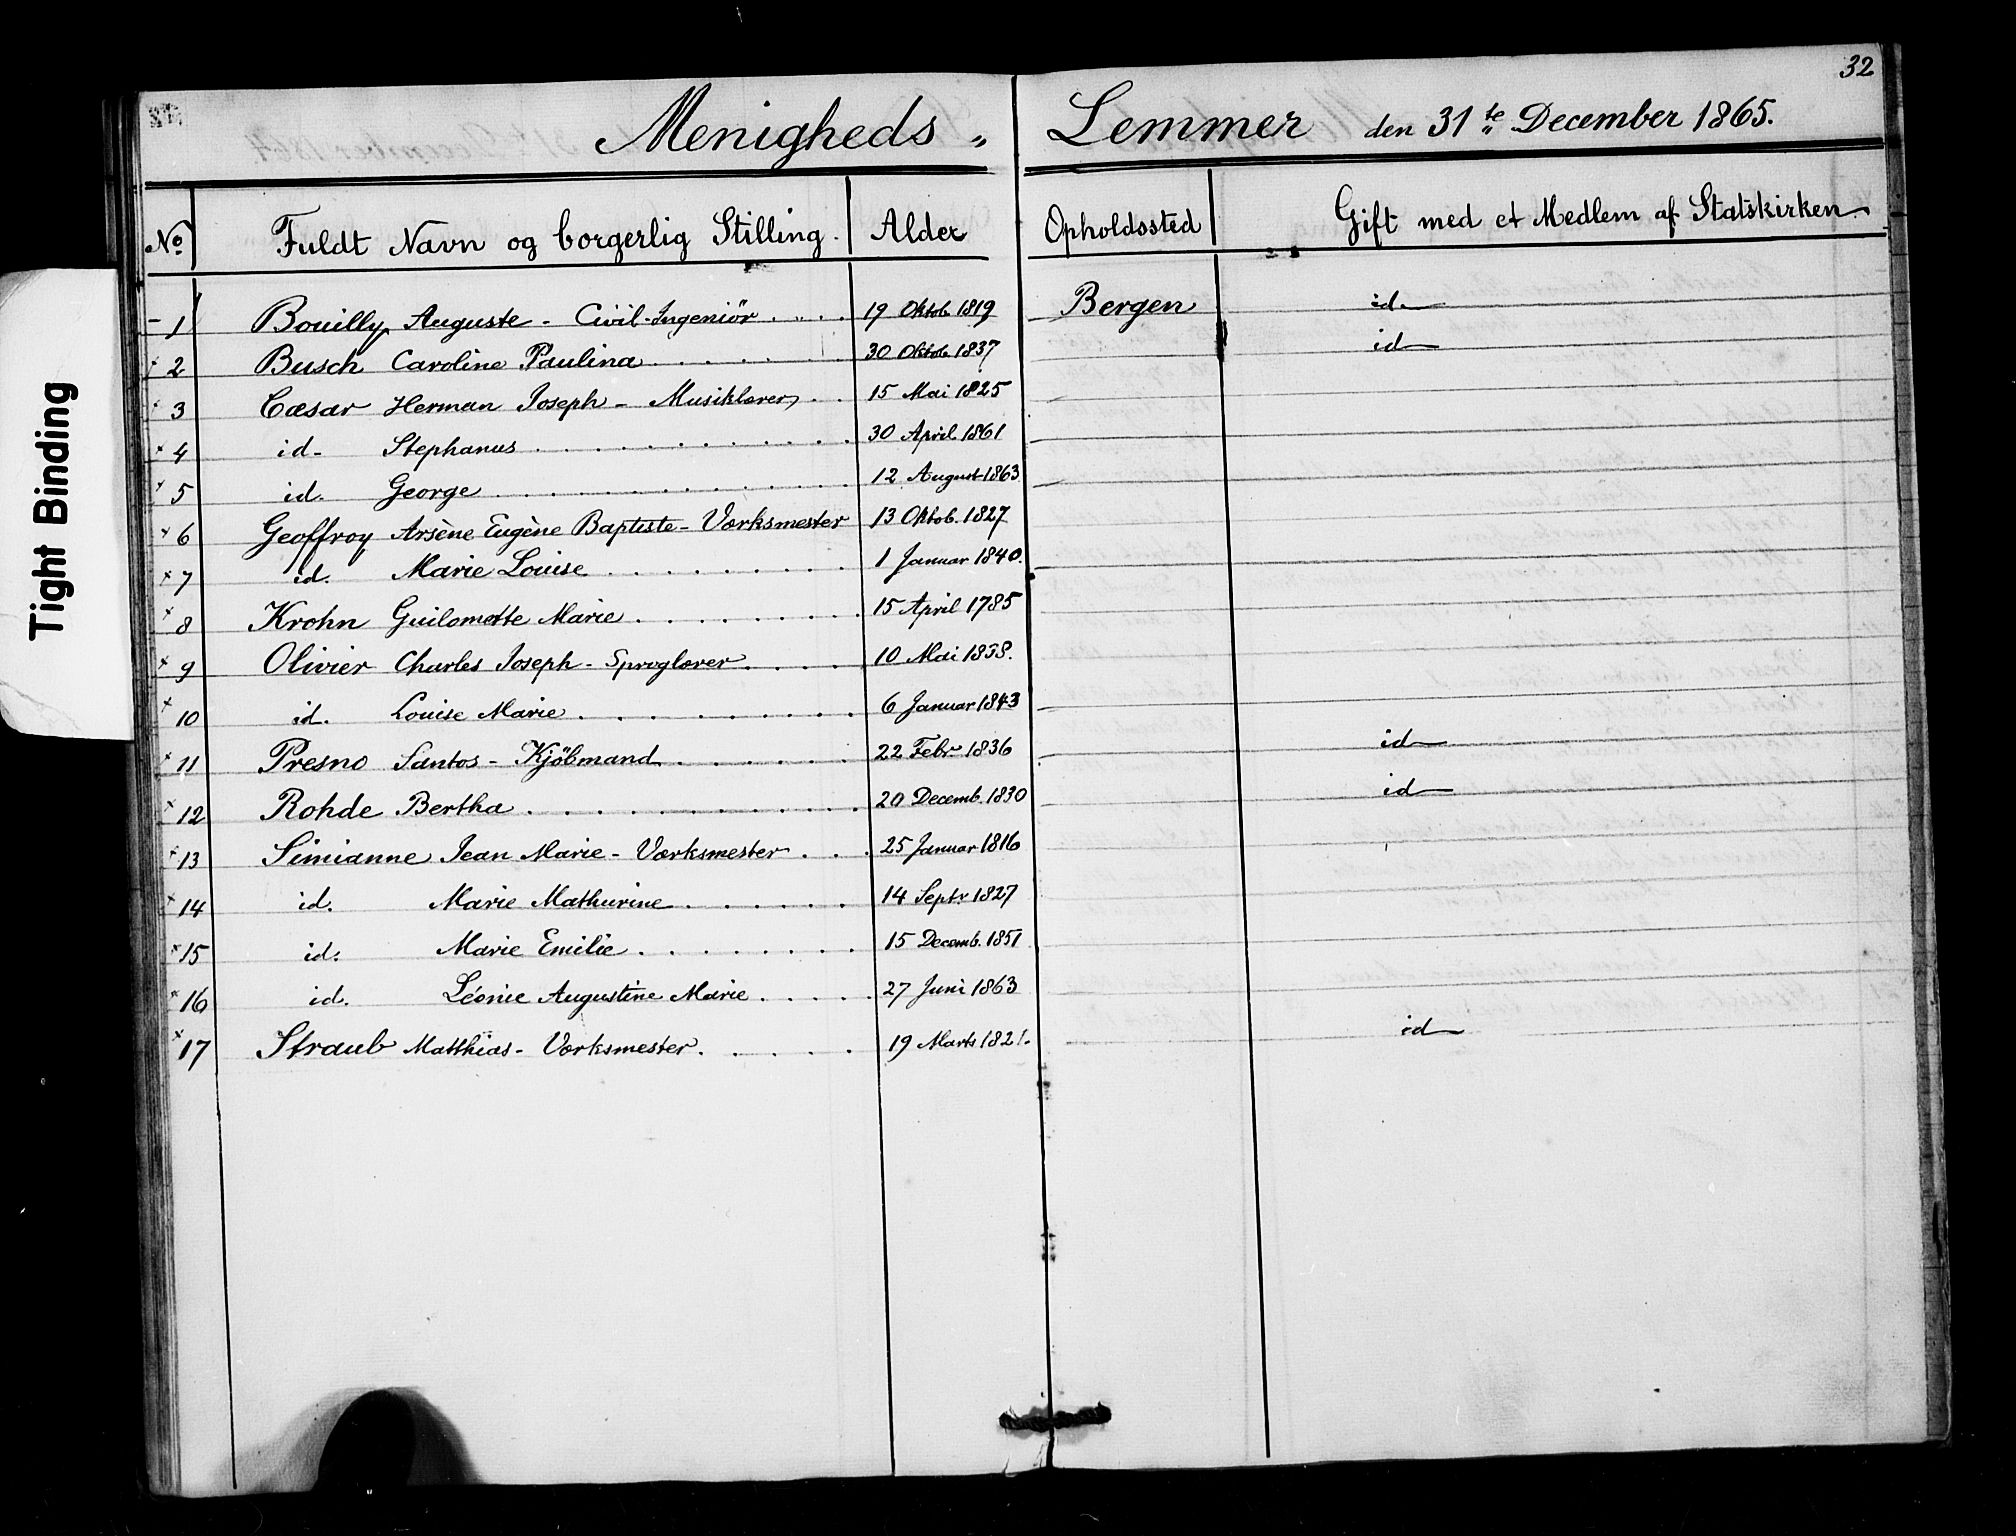 32
Menigheds- Lemmer den 31te December 1865.
No Fuldt Navn og borgerlig Stilling. Alder Opholdssted Gift med et Medlem af Statskirken
1 Bouilly Auguste - Civil-Ingeniör . . . 19 Oktob. 1819 Bergen id.
2 Busch Caroline Paulina . . . . . 30 Oktob. 1837 id
3 Cæsar Herman Joseph - Musiklærer . . 15 Mai 1825
4 id. Stephanus . . . . . . . . 30 April 1861
5 id. George . . . . . . . . 12 August 1863
6 Geoffroy Arsène Eugène Baptiste - Værksmester 13 Oktob. 1827
7 id. Marie Louise . . . . . . . 1 Januar 1840.
8 Krohn Guilomette Marie . . . . . . . 15 April 1785
9 Olivier Charles Joseph - Sproglærer . . . . 10 Mai 1838.
10 id. Louise Marie . . . . . . . . 6 Januar 1843
11 Presno Santos - Kjöbmand . . . . . . 22 Febr. 1836 id
12 Rohde Bertha . . . . . . . . . 20 Decemb. 1830 id
13 Simianne Jean Marie - Værksmester . . . 25 Januar 1816
14 id. Marie Mathurine . . . . . . 14 Septr. 1827
15 id. Marie Emilie . . . . . . . 15 Decemb. 1851
16 id. Léonie Augustine Marie . . . . . 27 Juni 1863
17 Straub Matthias - Værksmester . . . . . 19 Marts 1821. id
Tight Binding